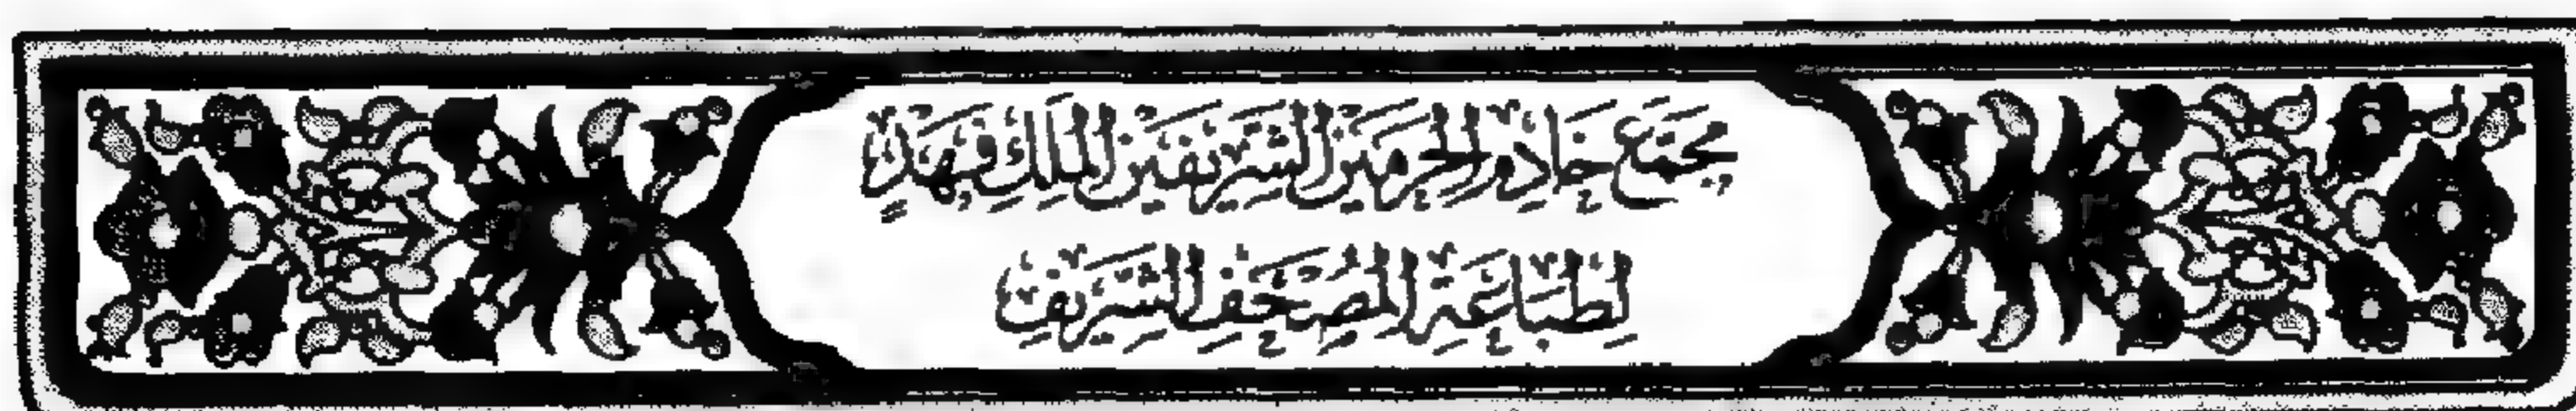 مُجَمَّع خَادِم الحَرَمَيْن الشَّرِيفَيْن المَلِك فَهْد
لِطِبَاعَةِ المُصْحَفِ الشَّرِيفِ